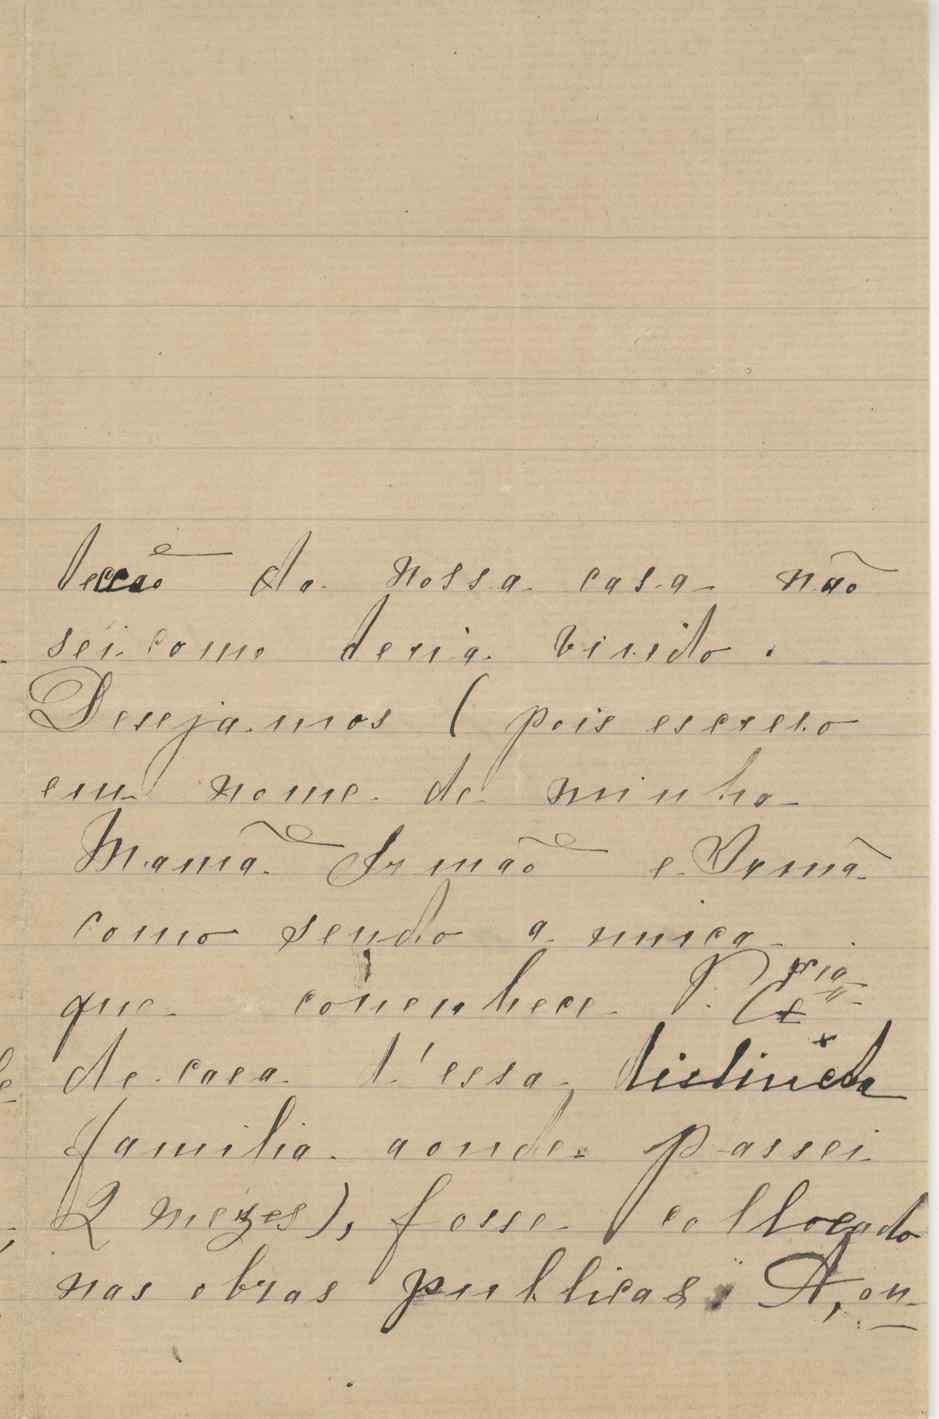 lecção da nossa casa não
sei como teria vindo.
Desejamos ( pois escrevo
em nome de minha
Mamã Irmão e Irmã
como sendo a unica
que conenhece V. Ex.ma
de casa d'essa distincta
familia aonde passei
2 mezes), fosse collocado
nas obras publicas; A, on-